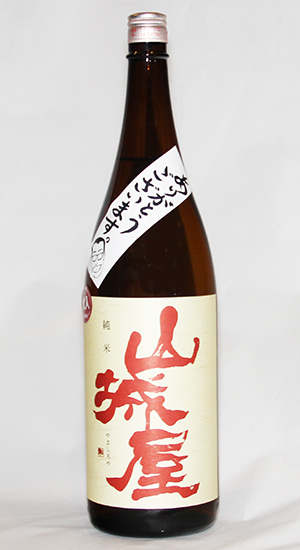 ありがとう
ございます。
純米
山城屋
やましろや